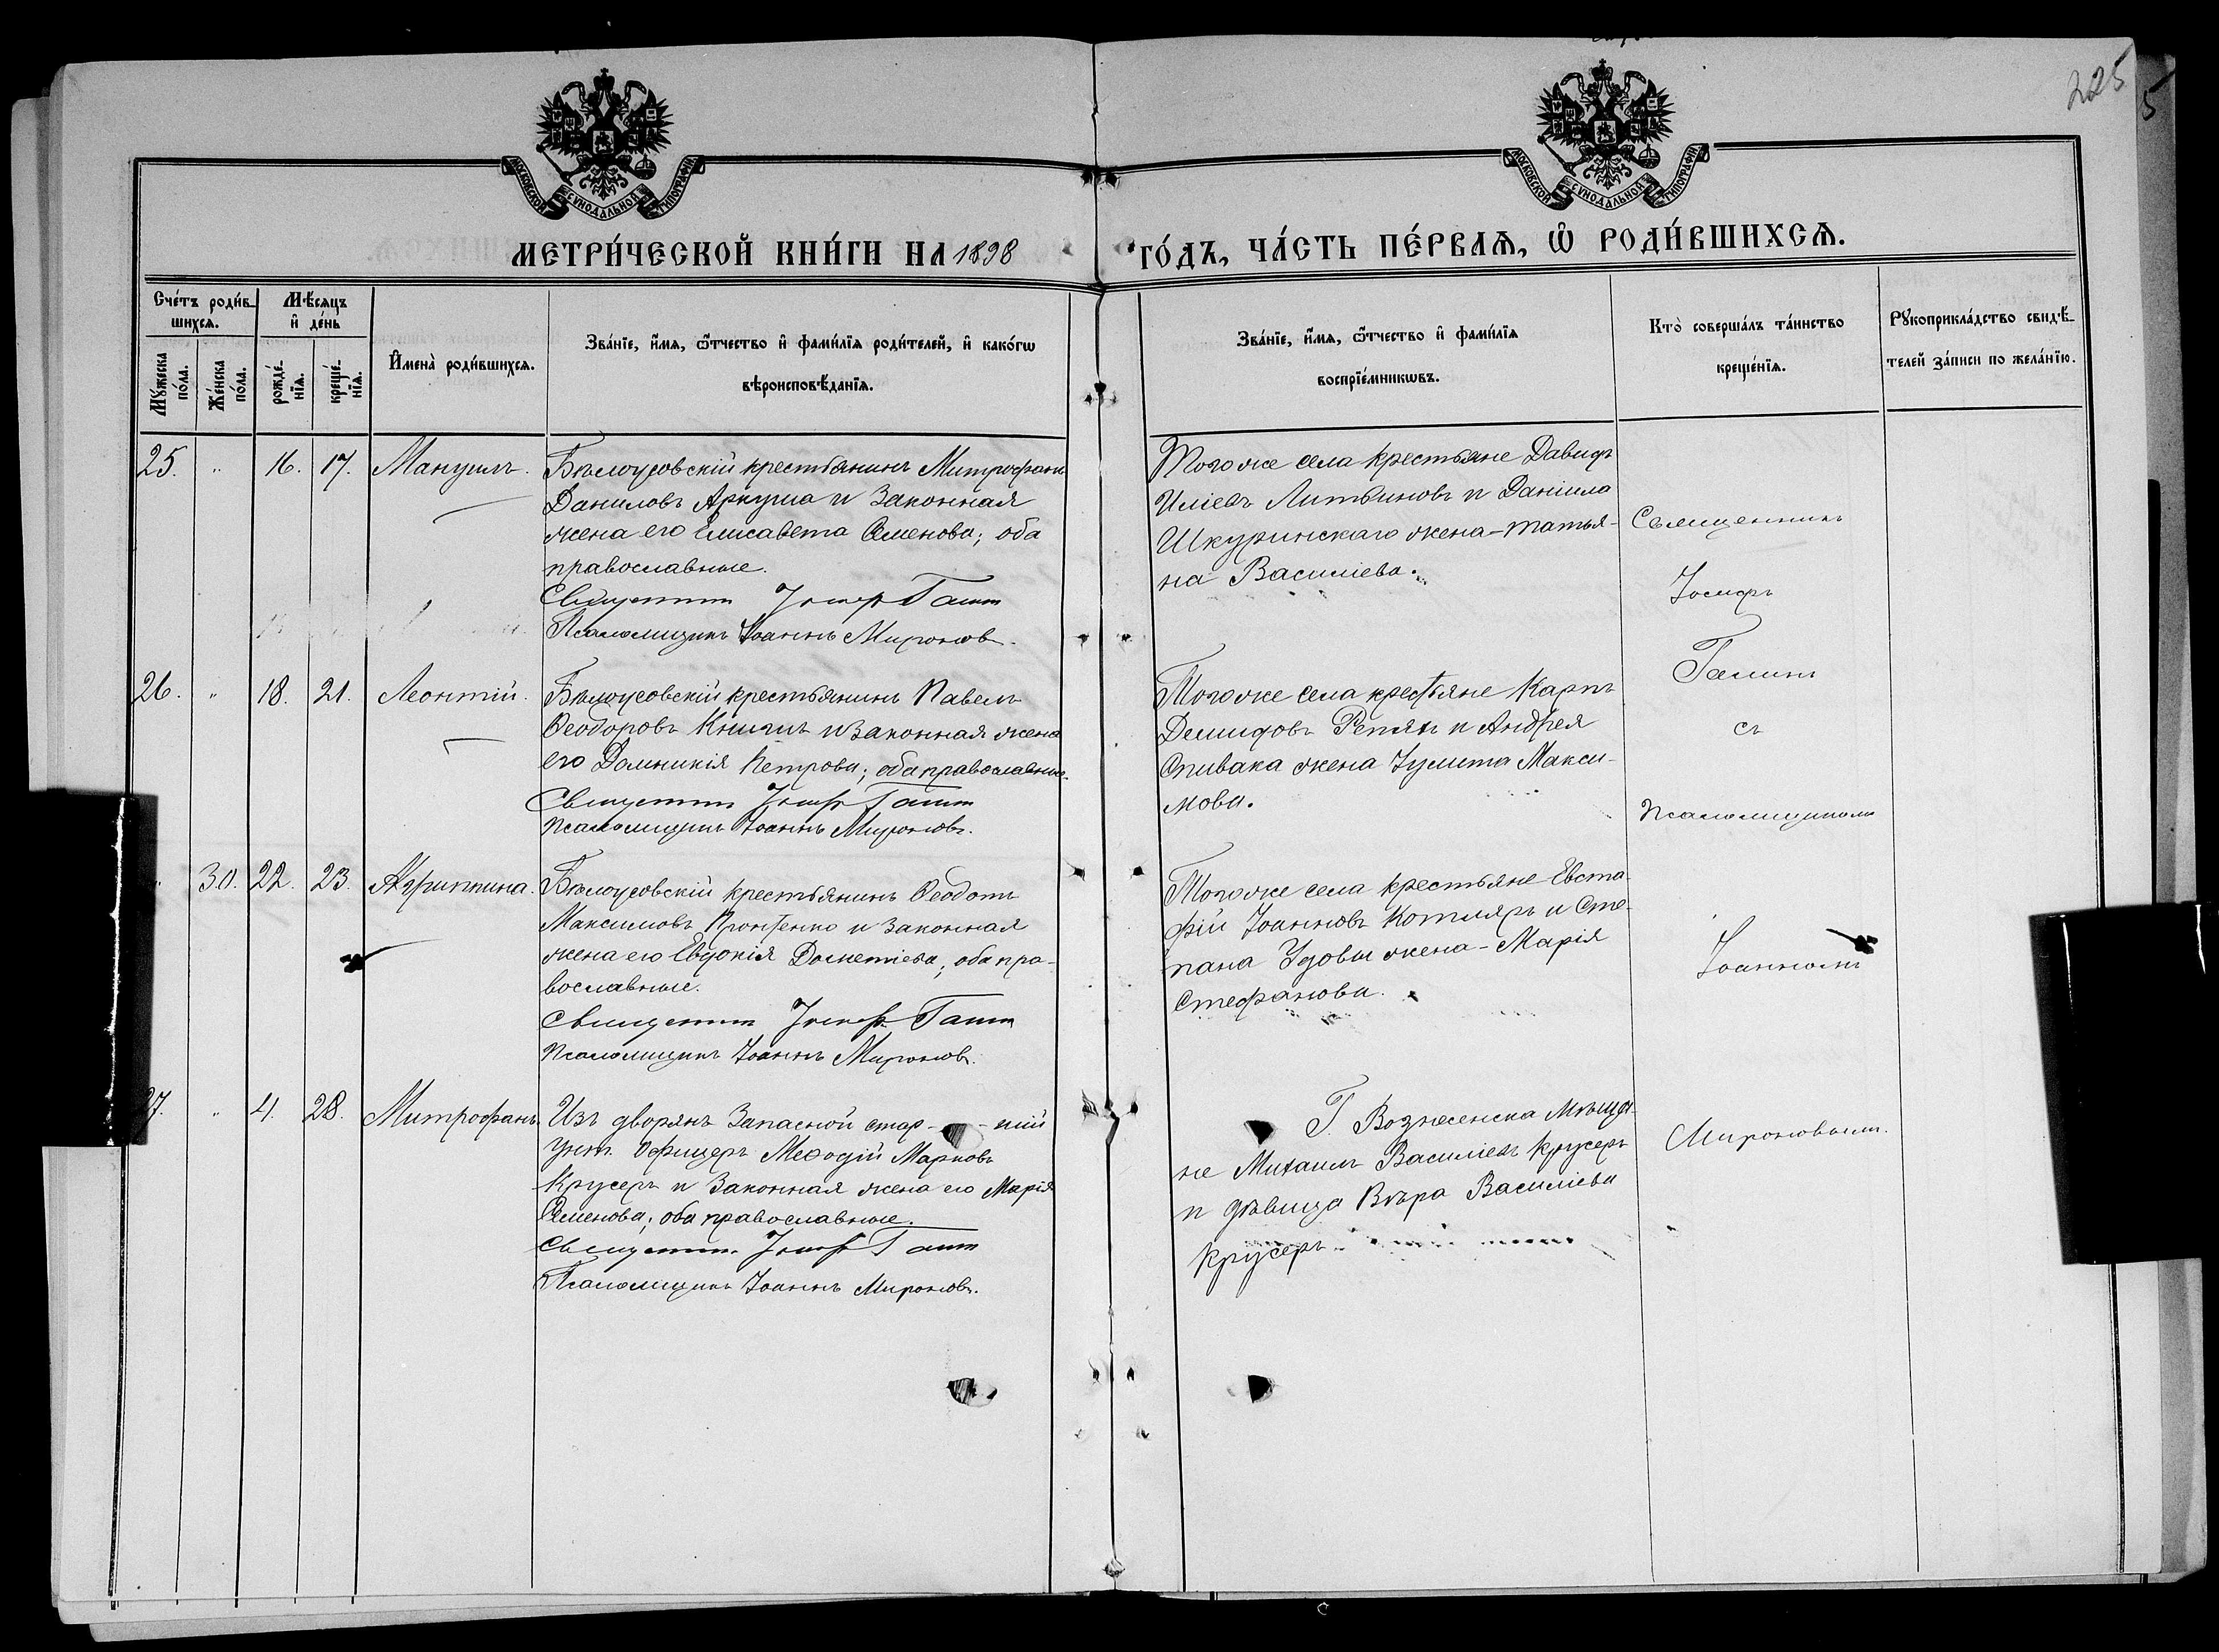 225
5
МОСКОВСКОЙ СУНОДАЛЬНОЙ ТИПОГРАФІИ
МОСКОВСКОЙ СУНОДАЛЬНОЙ ТИПОГРАФІИ
МЕТРИ́ЧЕСКОЙ КНИ́ГИ НА 1898
ГО́ДЪ, ЧА́СТЬ ПЕ́РВАѦ, Ѡ҆ РОДИ́ВШИХСѦ.
Сче́тъ роди́в-
шихсѧ.
Мѣ́сяцъ
и҆ де́нь
Мꙋ́жеска
по́ла.
Же́нска
по́ла.
рожде́-
нїѧ.
креще́-
нїѧ.
И҆мена̀ роди́вшихсѧ.
Зва́нїе, и҆́мѧ, ѻ҆́тчество и҆ фами́лїѧ роди́телей, и҆ како́гѡ
вѣроисповѣ́данїѧ.
Зва́нїе, и҆́мѧ, ѻ҆́тчество и҆ фами́лїѧ
воспрїе́мникѡвъ.
Кто̀ соверша́лъ та́инство
креще́нїѧ.
Рꙋкоприкла́дство свидѣ́-
телей за́писи по жела́нїю.
25. " 16. 17. Мануилъ.
Бѣлоусовскій крестьянинъ Митрофанъ
Даниловъ Аркуша и законная
жена его Елисавета Семенова; оба
православные.
Священникъ Іосифъ Галин
Псаломщикъ Іоаннъ Миронов.
Тогоже села крестьяне Давидъ
Иліевъ Литвиновъ и Даніила
Шкуринскаго жена-Татья-
на Василіева.
Священникъ
Іосифъ
Галинъ
съ
Псаломщикомъ
Іоанномъ
Мироновымъ.
26. " 18. 21. Леонтій.
Бѣлоусовскій крестьянинъ Павелъ
Ѳеодоровъ и законная жена
его Домникія Петрова; оба православные.
Священникъ Іосифъ Галин
Псаломщикъ Іоаннъ Мироновъ.
Тогоже села крестьяне Карпъ
Демидовъ Репяхъ и Андрея
Спивака жена Іулита Макси-
мова.
30. 22. 23. Агриппина.
Бѣлоусовскій крестьянинъ Ѳеодотъ
Максимовъ и законная
жена его Евдокія Дометіева; оба пра-
вославные.
Священникъ Іосифъ Галин
Псаломщикъ Іоаннъ Миронов.
Тогоже села крестьяне Евста-
фій Іоанновъ Котляръ и Сте-
пана Удовы жена-Марія
Стефанова.
27. " 4. 28. Митрофанъ.
Изъ дворянъ запасной стар- -шій
унт. офицеръ Меѳодій Марковъ
Крусеръ и законная жена его Марія
Семенова; оба православные.
Священникъ Іосифъ Галин
Псаломщикъ Іоаннъ Мироновъ.
Г. Вознесенска мѣща-
не Михаилъ Василіевъ Крусеръ
и дѣвица Вѣра Василіева
Крусеръ.